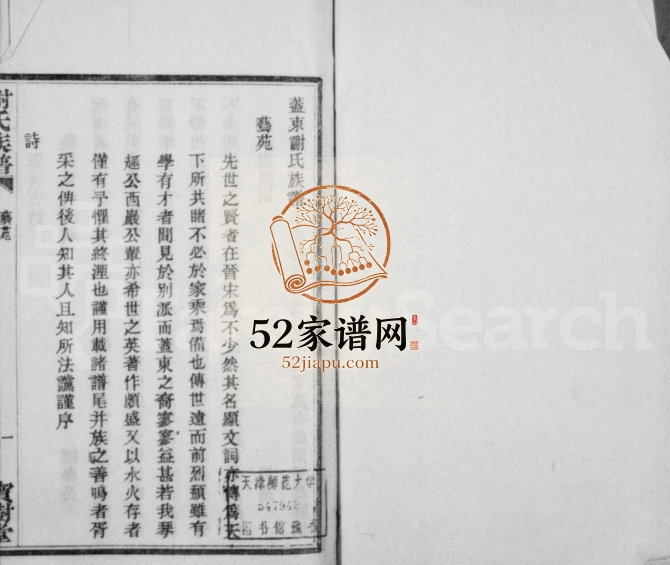 蓋東謝氏族譜
藝苑
先世之賢者在晉宋為不少然其名顯文詞亦傳為天
下所共睹不必於家乘焉備也傳世遠而前烈頹雖有
學有才者間見於別派而蓋東之裔寥寥益甚若我琴
趣公西巖公輩亦希世之英著作頗盛又以水火存者
僅有予懼其終湮也謹用載諸譜尾并族之善鳴者胥
采之俾後人知其人且知所法讜謹序
詩
謝氏族譜
藝苑
一
寶樹堂
52家谱网
52jiapu.com
天津师范大学
54794
图书馆藏书
Search